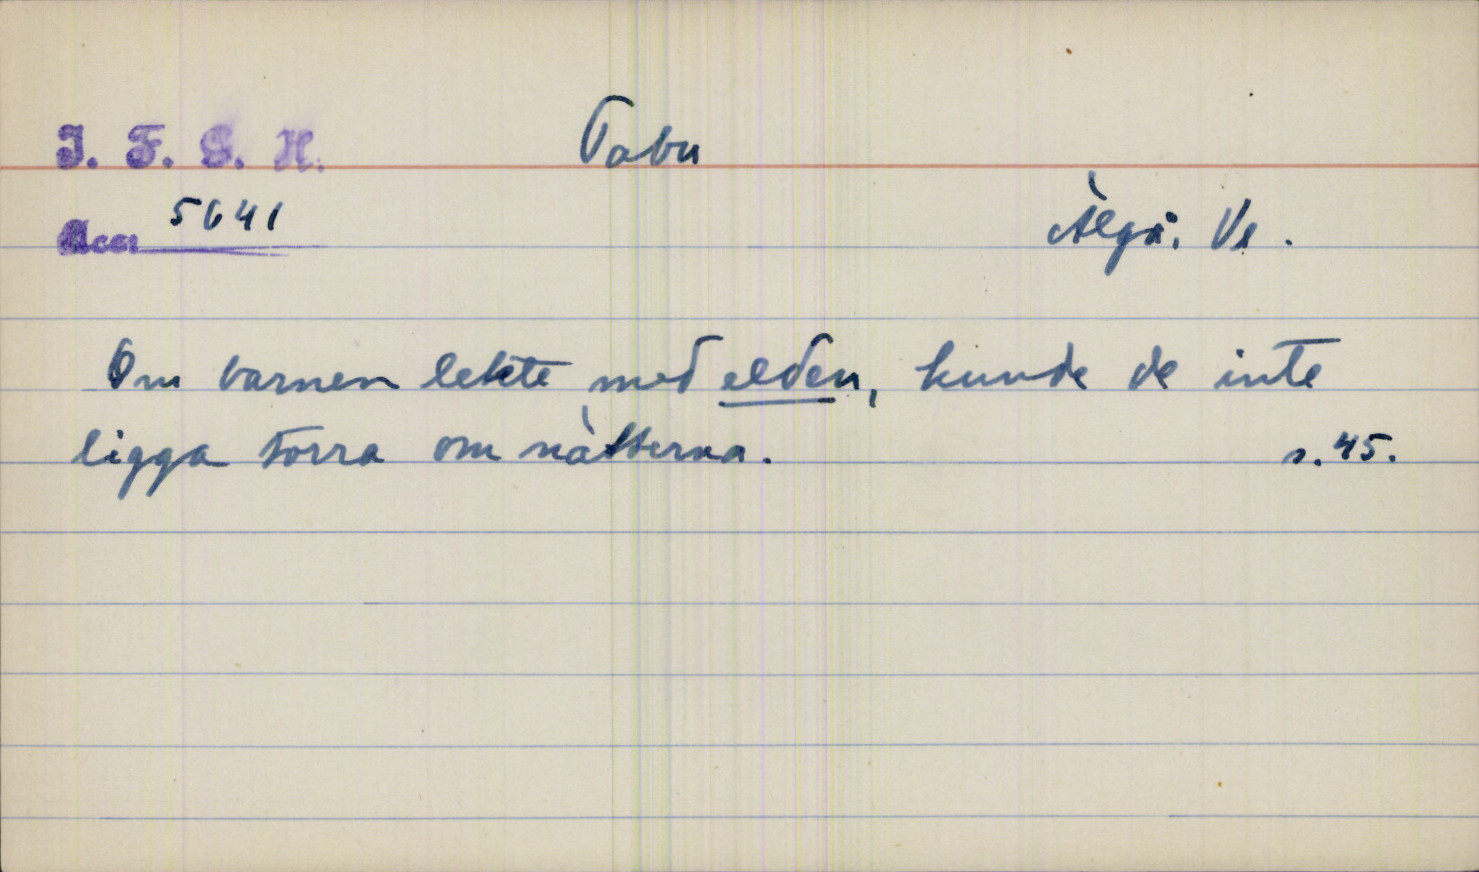 I. F. G. H. Tabu
Acc. 5641
Älgå. Vr.
Om barnen lekte med elden, kunde de inte
ligga torra om nätterna. s. 45.